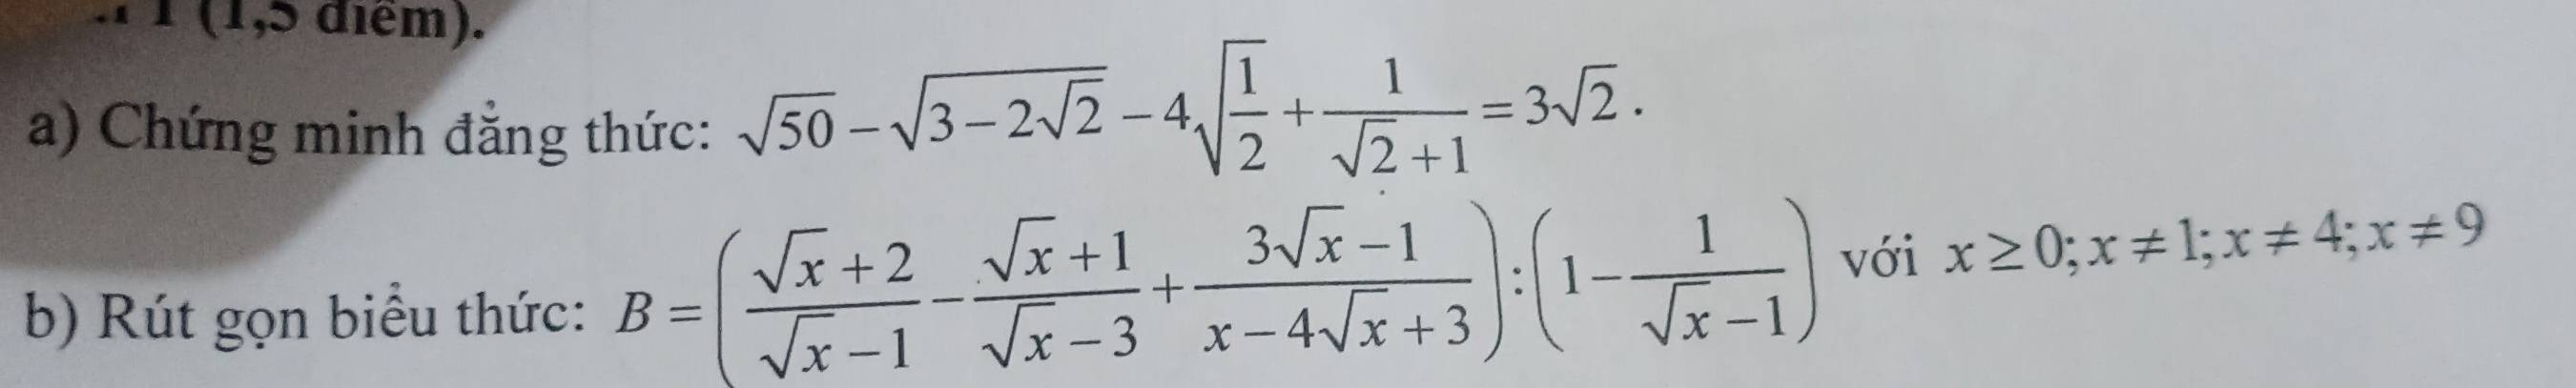 1 (1,5 điểm).
a) Chứng minh đẳng thức: √50 − √(3 − 2√2) − 4√(1/2) + 1/(√2 + 1) = 3√2 .
b) Rút gọn biểu thức: B = ((√x + 2)/(√x − 1) − (√x + 1)/(√x − 3) + (3√x − 1)/(x − 4√x + 3)) : (1 − 1/(√x − 1)) với x ≥ 0; x ≠ 1; x ≠ 4; x ≠ 9